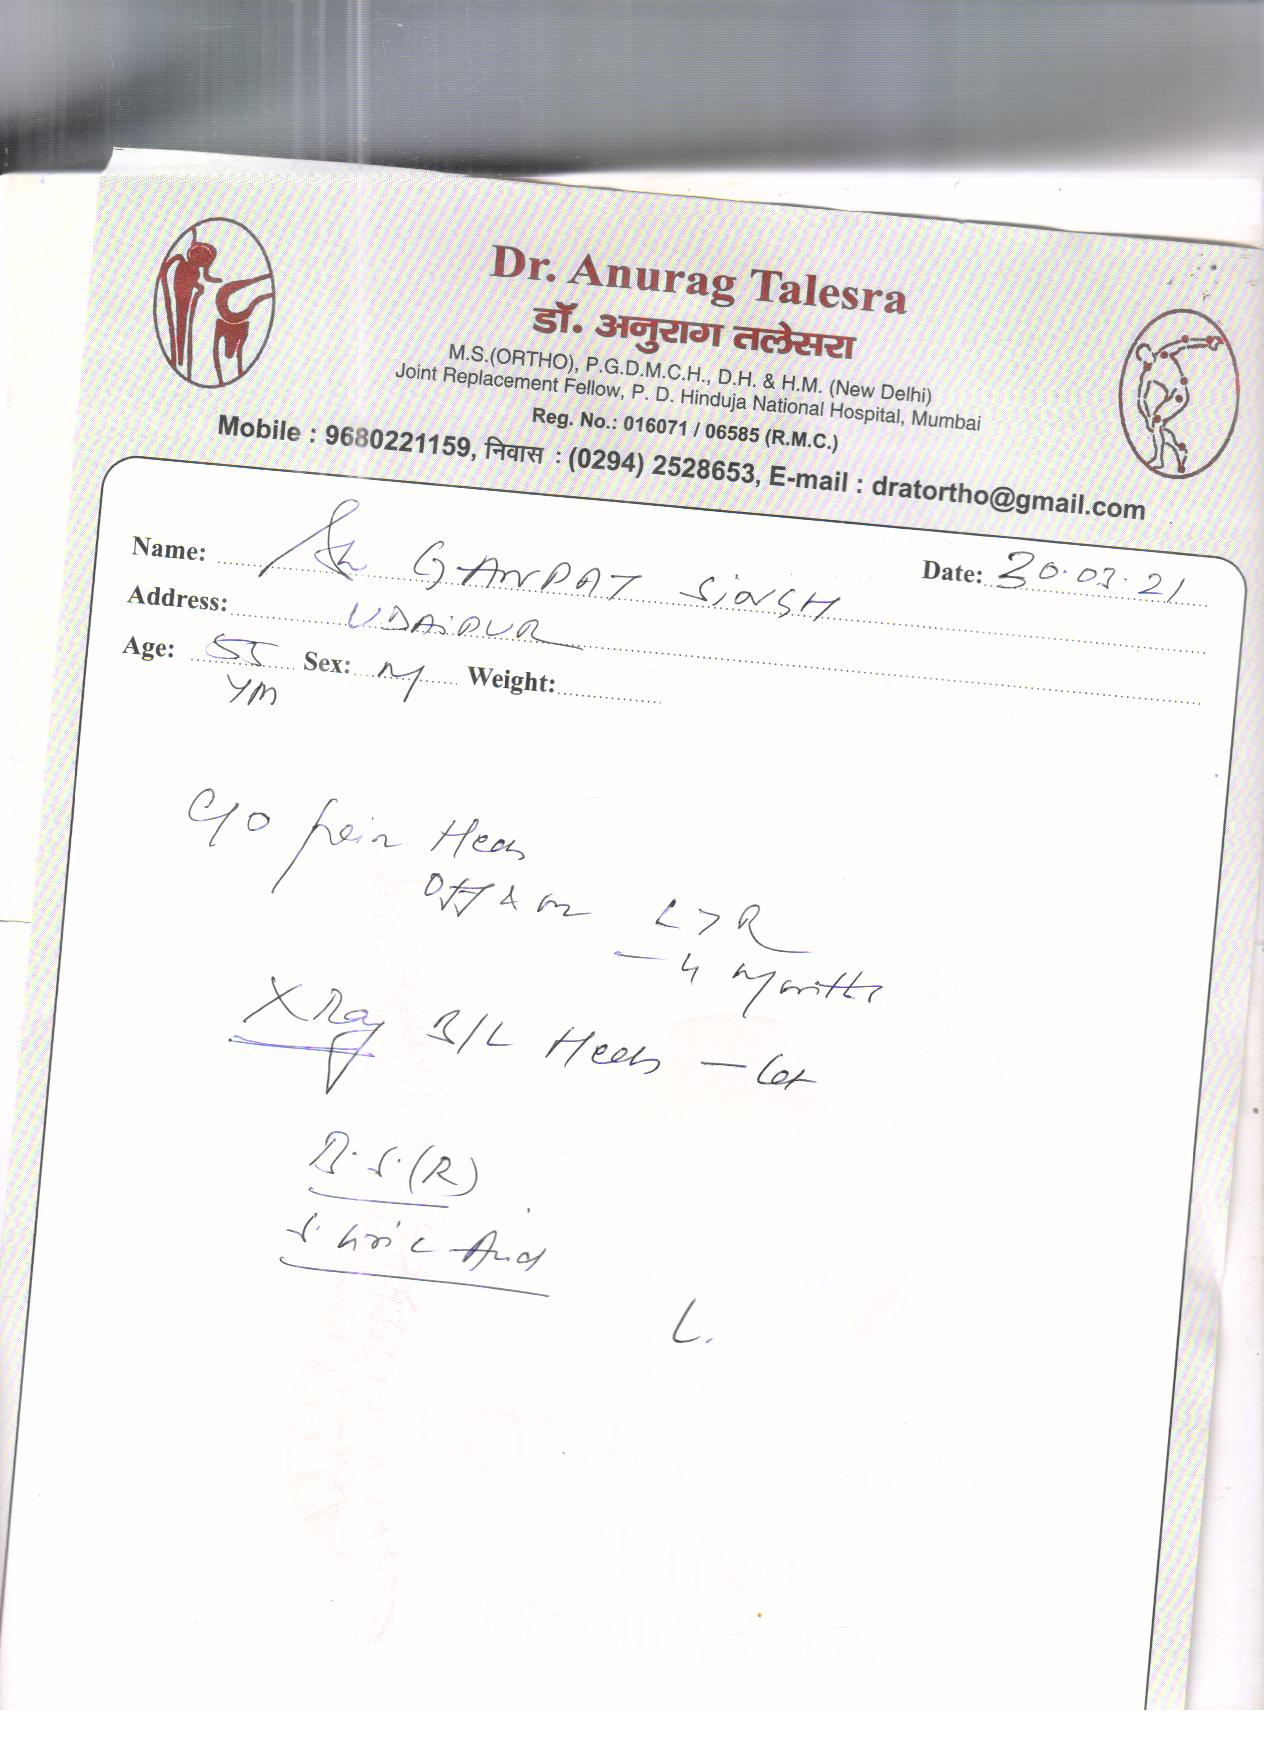 Dr. Anurag Talesra
डॉ. अनुराग तलेसरा
M.S.(ORTHO), P.G.D.M.C.H., D.H. & H.M. (New Delhi)
Joint Replacement Fellow, P. D. Hinduja National Hospital, Mumbai
Reg. No.: 016071 / 06585 (R.M.C.)
Mobile : 9680221159, निवास : (0294) 2528653, E-mail : dratortho@gmail.com
Name: Sh GANPAT SINGH Date: 30.03.21
Address: UDAIPUR
Age: 55 Sex: M Weight:
C/O pain Heels
Off & on L > R
— 4 Months
X Ray B/L Heels — Lat
B.S.(R)
S. Uric Acid
L.